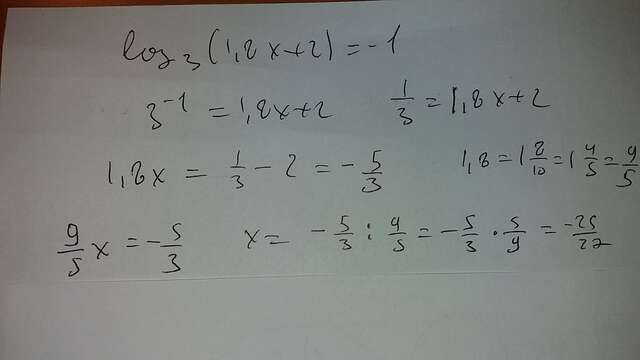 log₃(1,8x+2)=-1
3⁻¹=1,8x+2    1/3=1,8x+2
1,8x=1/3-2=-5/3    1,8=1 8/10=1 4/5=9/5
9/5 x=-5/3    x=-5/3:9/5=-5/3·5/9=-25/27